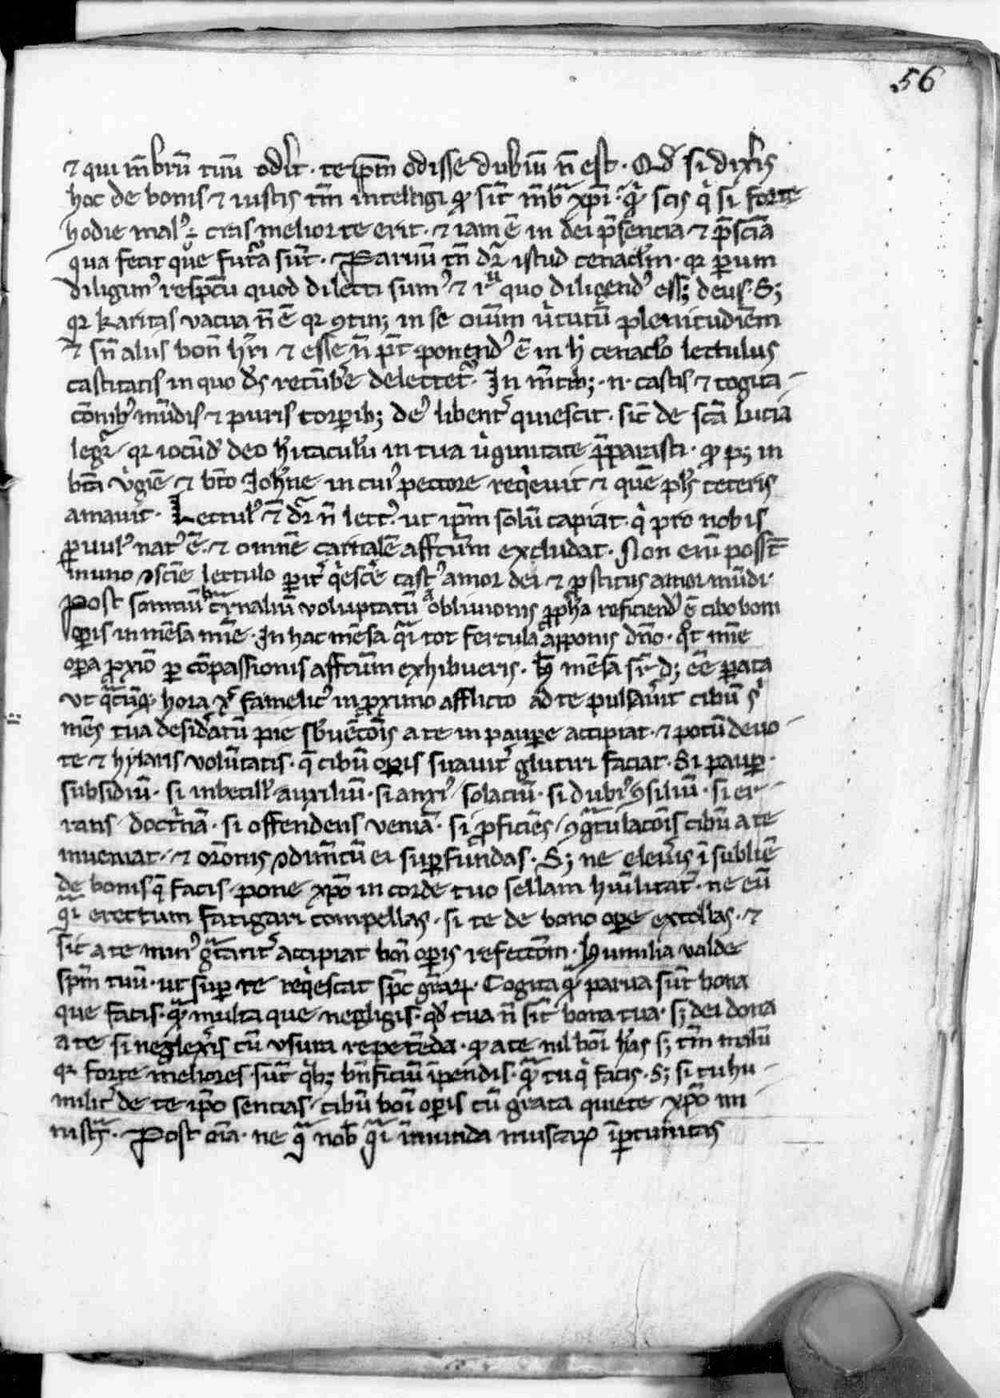 56
⁊ qui mēbrū tuū odit̄. te ip̄m odisse dubiū n̄ est. Qd̄ si dix̄is
hoc de bonis ⁊ iustis tm̄ intelligi ꝙ sīt mēb̄ xp̄i. q̄ scis q̇ si forte
hodie malꝰ. cras melior te erit. ⁊ iam ē in dei p̄sencia ⁊ p̄sciā
qua fecit que futā sūt. Paruū tn̄ dr̄ istud cenaclm̄. qr ꝑum
diligimꝰ respc̄tu quod dilecti sumꝰ ⁊ quo diligendꝰ ess; deus. S;
qr karitas vacua n̄ ē qr ꝯtin; in se oīum v̇tutū plenitudiēm
⁊ sn̄ aliis bon̄ hr̄i ⁊ esse n̄ pt̄ ponendꝰ ē in h̄ cenaclo lectulus
castitatis in quo ds̄ recūbe delectet̄. In mētib;. n. castis ⁊ cogita
cōnibꝰ mūdis ⁊ puris corporib; deꝰ libent̄ quiescit. sic̄ de scā Lucia
legr̄. qr iocūd deo h̄itaculū in tua v̇ginitate p̄parasti. ꝙ p; in
bt̄a v̇giē ⁊ bt̄o Joh̄ne in cuiꝰ pectore reqevit ⁊ quē pls̄ ceteris
amavit. Lectulꝰ ē dr̄ n̄ lectꝰ. ut ip̄m solū capiat. q̇ pro nobis
ꝑuulꝰ natꝰ ē. ⁊ omnē carnalē affc̄um excludat. Non eni possēt
in uno ꝯsciē lectulo pit̄ q̇escē castꝰ amor dei ⁊ ꝓstitus amor mūdi.
Post somniū carnaliū voluptatū oblivionis ꝓph̄a reficiendꝰ ē cibo boni
oꝑis in mēsa mīe. In hac mēsa q̄i tot fercula apponis dn̄o. qt̄ mīe
oꝑa ꝓxiō ꝑ cōpassionis affc̄um exhibueris. h̄ mēsa sꝑ d; eē ꝑata
ut q̄cūq; hora xꝰ famelicꝰ in ꝓximo afflicto ad te pulsav̄it cibū
mēs tua desidātū pie sb̄uētōis a te in pauꝑe accipiat. ⁊ potū devo
te ⁊ hylaris volūtatis. q̄ cibū oꝑis suauit̄ glutiri faciat. Si pauꝑ.
subsidiū. si inbecillꝰ auxiliū. si anxiꝰ solaciū. si dubiꝰ ꝯsiliū. si er
rans doct̄nā. si offendens veniā. si ꝓficiēs ꝯg̃tulacōis cibū a te
inueniat. ⁊ orōnis ꝯdimētū ei suꝑfundas. S; ne elev̄is ī subliē
de bonis q̄ facis. pone xp̄o in corde tuo sellam hūilitat̄. ne eū
q̄i erectum fatigari compellas. si te de bono oꝑe extollas. ⁊
sic a te minꝰ g̃tant̄ accipiat bōi oꝑis refectōm. Humilia valde
sp̄m tuū. ut suꝑ te reqescat sp̄c gr̄aꝝ. Cogita q̄ parva sūt bona
que facis. q̄ multa que negligis. qd̄ tua n̄ sīt bona tua. s; dei dona
a te si neglex̄is cū usura repetēda. ꝙ a te nil bōi h̄as s; tm̄ malū
qr forte meliores sūt q̇b; bn̄ficiū ipendis. q̄ tu q̇ facis. S; si tu hu
milit̄ de te ip̄o sencias. cibū boī oꝑis cū grata quiete xp̄o mi
nist̄s. Post oīa. ne q̄ nob̄ q̄i īmunda muscaꝝ īportunitas